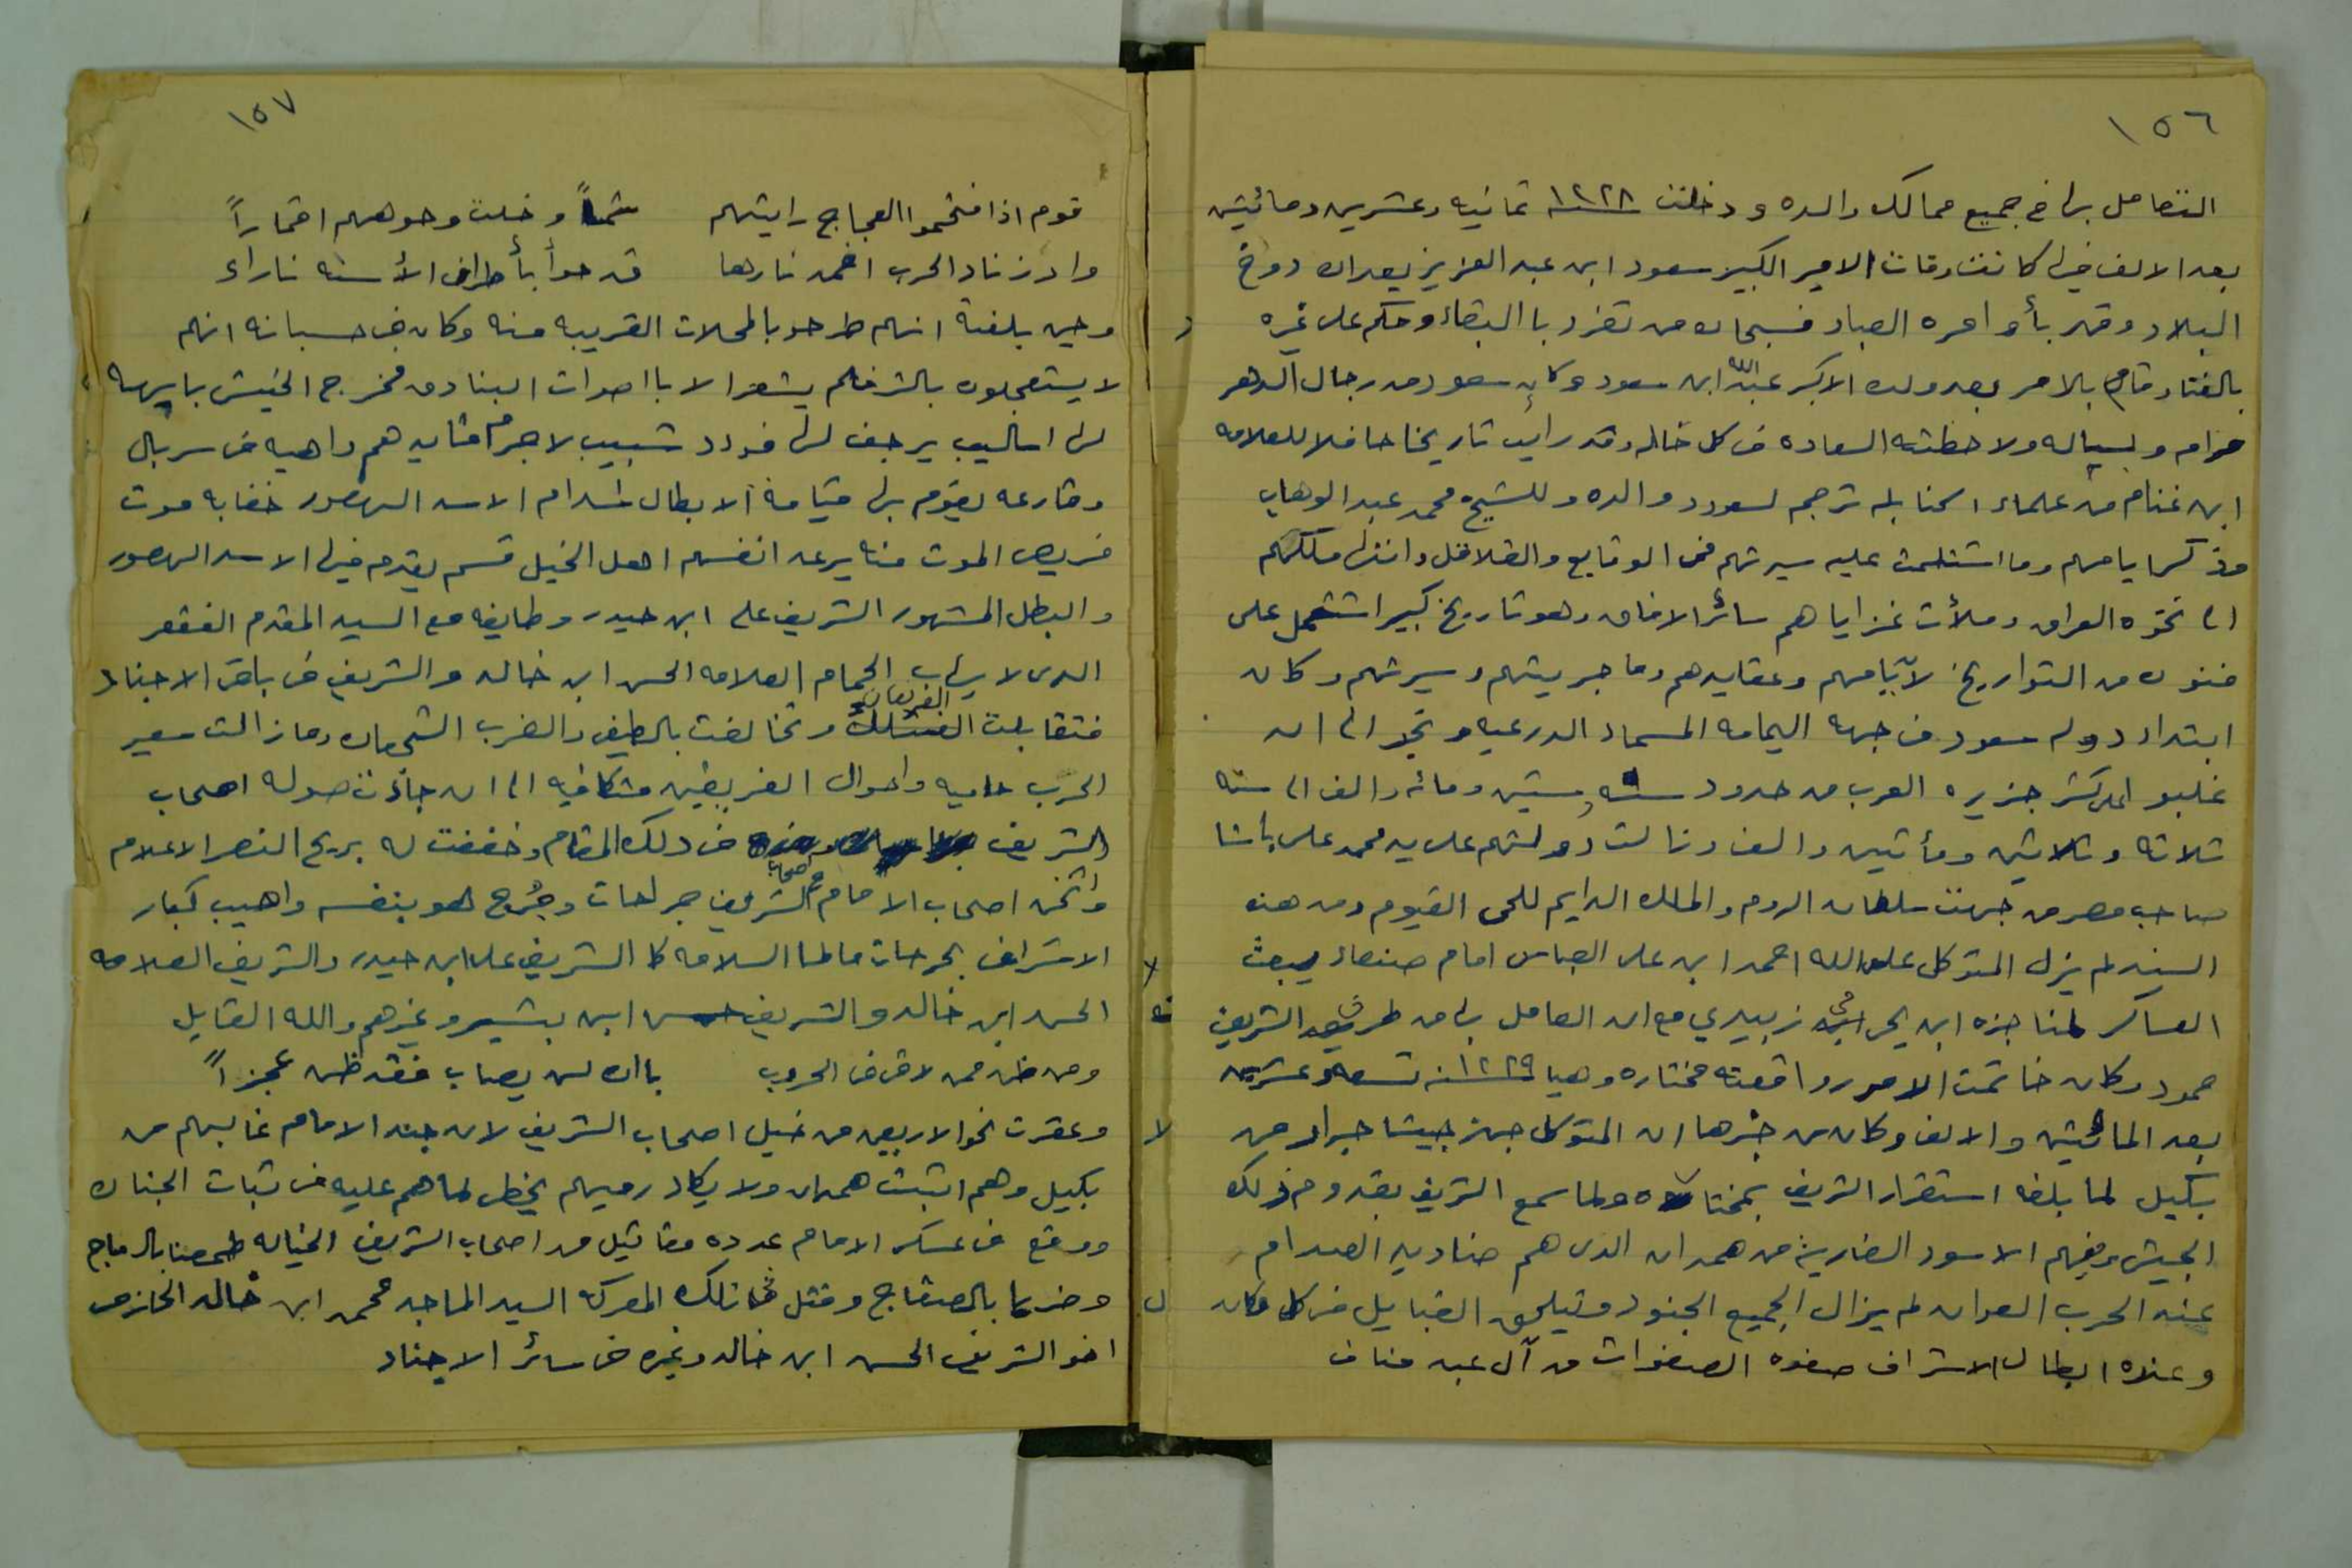 ١٥٦
التعامل بها في جميع ممالك والده ودخلت سنة ١٢٢٨ ثمانيه وعشرين ومائتين
بعد الالف فيها كانت وفات الامير الكبير سعود ابن عبد العزيز بعد ان دوخ
البلاد وقهر بأوامره العباد فسبحان من تفرد با البقاء وحكم على غيره
بالفنا وقام بالامر بعد ولده الاكبر عبد الله ابن سعود وكان سعود من رجال الدهر
حزام وبساله ولا حظته السعاده في كل حاله وقد رايت تاريخا حافلا للعلامه
ابن غنام من علماء الحنابله ترجم لسعود ووالده وللشيخ محمد عبد الوهاب
وذكر ايامهم وما اشتملت عليه سيرتهم من الوقايع والقلاقل وانتها ملكهم
الى نحوه العراق وملأت غزاياهم سائر الافاق وهو تاريخ كبير اشتمل على
فنون من التواريخ لأيامهم وعقايدهم وما جريتهم وسيرتهم وكان
ابتداء دولة سعود من جهه اليمامه المسماه الدرعيه ونجد الى ان
غلبو اعلى كثر جزيره العرب من حدود سنه ستين ومائه والف الى سنه
ثلاثه وثلاثين ومأتين والف وزالت دولتهم على يد محمد على باشا
صاحب مصر من جهت سلطان الروم والملك الدايم للحي القيوم ومن هذه
السنه لم يزل المتوكل على الله احمد ابن على العباس امام صنعاء يبعث
العساكر لمناجزه ابن يحي زبيدي مع ان العامل بها من طرف الشريف
حمود وكان خاتمت الامور واقعته مختاره وهيا سنه ١٢٢٩ تسعه وعشرين
بعد المائتين والالف وكان من خبرها ان المتوكل جهز جيشا جرار من
بكيل لما بلغه استقرار الشريف بمختاره ولما سمع الشريف بقدوم ذلك
الجيش وفيهم الاسود الضاريه من همدان الذي هم صناديد الصدام
عند الحرب العوان لم يزال الجميع الجنود وتيلحق القبايل من كل مكان
وعنده ابطال الاشراف صفوه الصفوات من آل عبد مناف
١٥٧
قوم اذا فتحموا العجاج رايتهم شمساً وخلت وجوههم اقماراً
واذ زناد الحرب اخمد نارها قد حوا بأطراف الأسنه ناراء
وحين بلغته انهم طرحو بالمحلات القريبه منه وكان في حسبانه انهم
لا يستعجلون بالشر فلم يشعر الا بااصوات البنادق فخرج الجيش بايهه
لها اساليب يرجف لها فودد شبيب لاجرم قايدهم داهيه في سربال
وقارعه يقوم بها قيامة الابطال المدام الاسد الهصور خفابه موت
فريص الموت منايرعد انفسهم اهل الخيل قسم يقدم فيها الاسد الهصور
والبطل المشهور الشريف على ابن حيدر وطايفه مع السيد المقدم الغقعر
الذي لا يهاب الحمام العلامه الحسن ابن خالد والشريف في باقي الاجناد
فتقابلت الفريقان وتخالفت بالطيف والضرب الشجعان وما زالت سعير
الحرب حاميه واحوال الفريقين متكافيه الى ان جائت صوله اصحاب
الشريف في ذلك المقام وخفقت له بريح النصر الاعلام
واثخن اصحاب الامام اصحاب الشريف جراحات وجُرح هو بنفسه واهيب كبار
الاشراف بجرحات مالها السلامه كا الشريف على ابن حيدر والشريف العلامه
الحسن ابن خالد والشريف حسن ابن بشير وغيرهم والله القايل
ومن ظن ممن لاقى في الحروب باان لن يصاب فقد ظن عجزاً
وعقرت نحو الاربعين من خيل اصحاب الشريف لان جند الامام غالبهم من
بكيل وهم اثبت همدان ولا يكاد رميهم يخطى لماهم عليه من ثبات الجنان
ووقع في عسكر الامام عدده مقاتيل من اصحاب الشريف الخياله طعنا بالرماح
وضربا بالصفاح وقتل في تلك المعركه السيد الماجد محمد ابن خالد الحازمى
اخو الشريف الحسن ابن خالد وغيره من سائر الاجناد